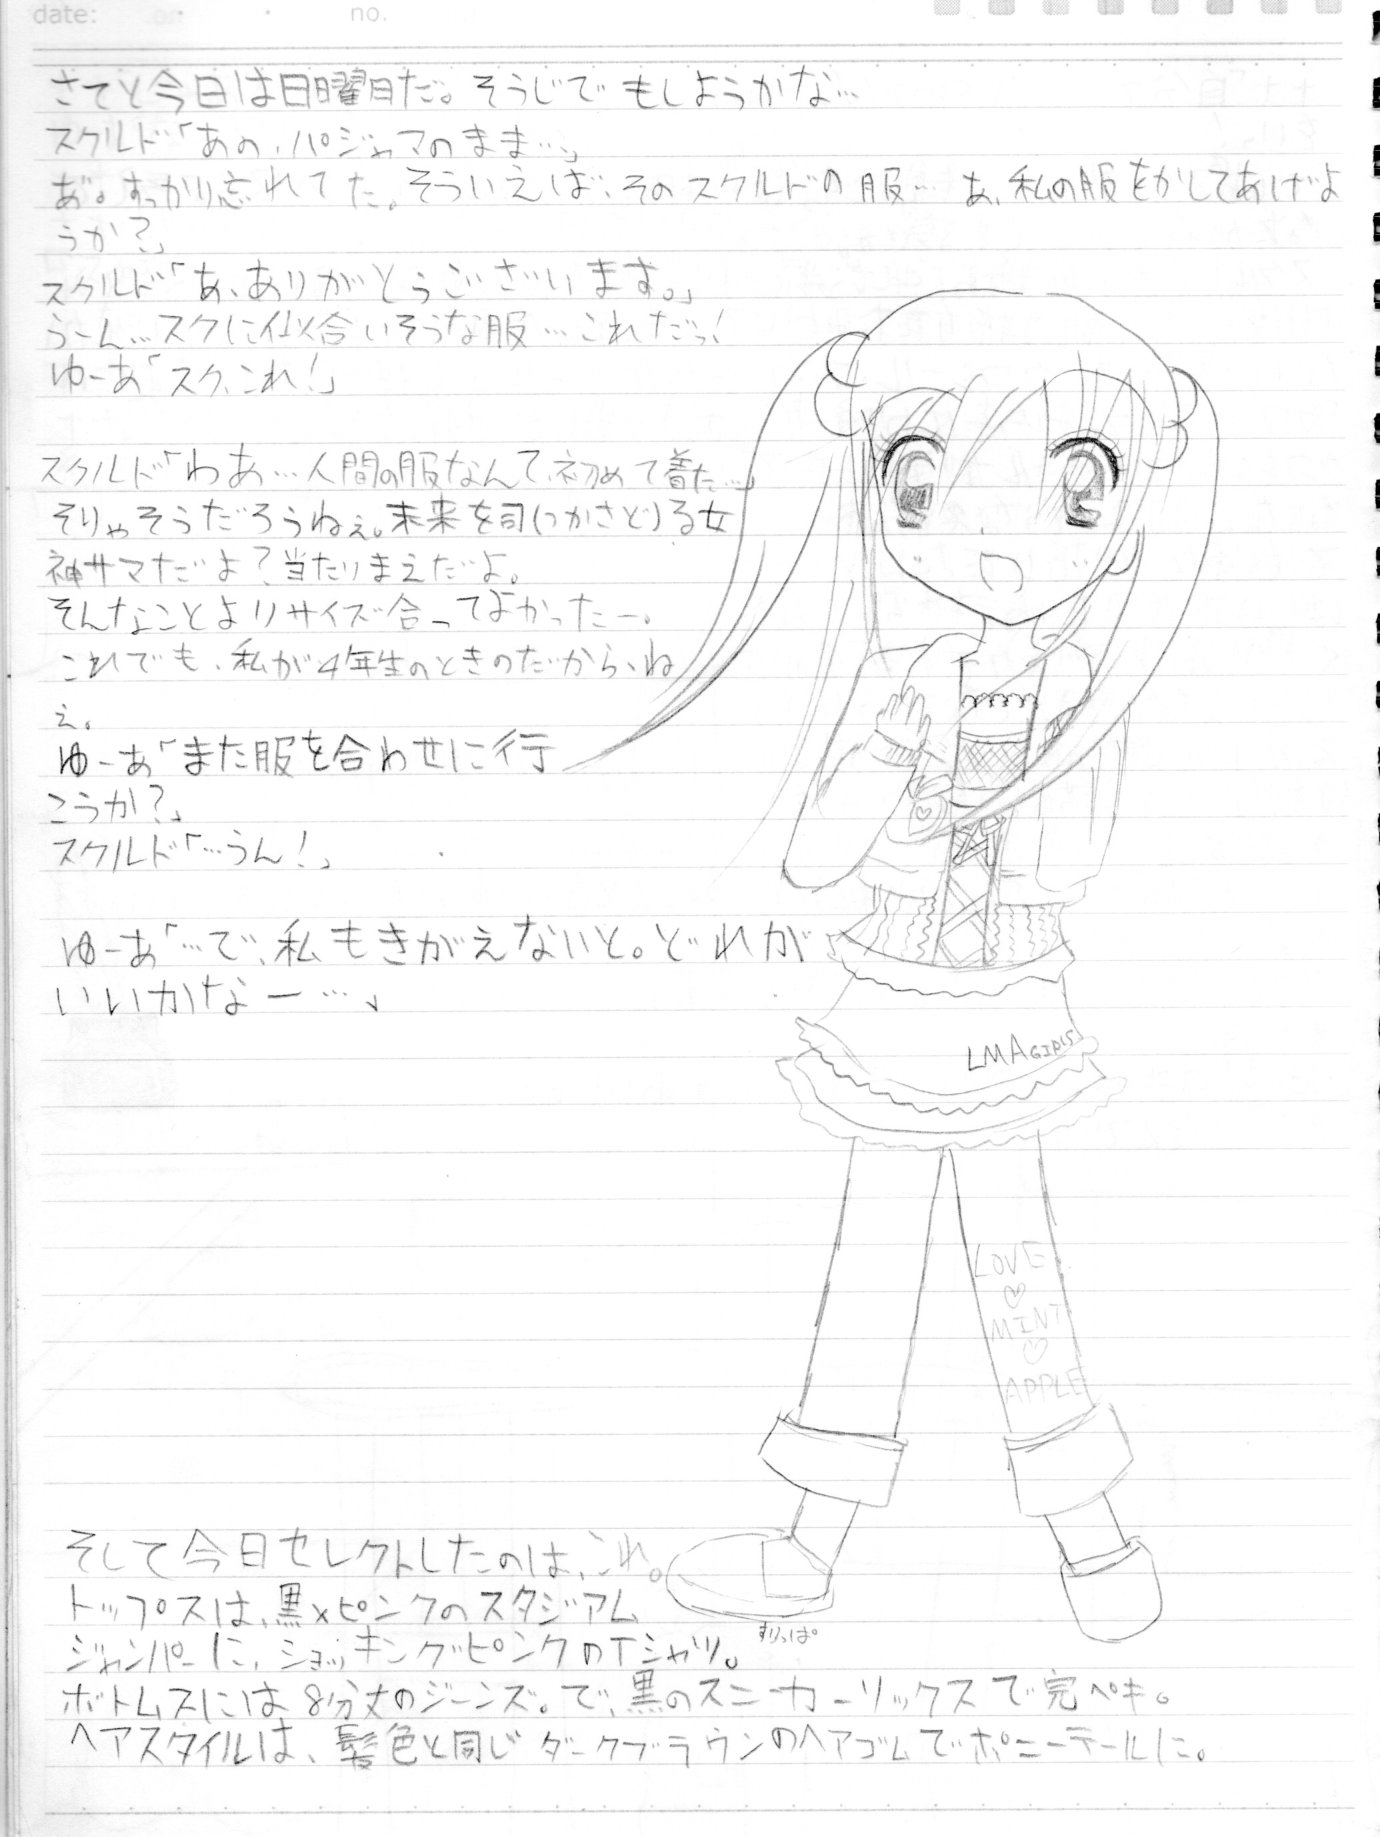 date:
no.
さてと今日は日曜日だ。そうじでもしようかな…
スクルド「あの、パジャマのまま…」
あ゛。すっかり忘れてた。そういえば、そのスクルドの服… あ、私の服をかしてあげよ
うか?」
スクルド「あ、ありがとうございます。」
うーん…スクに似合いそうな服…これだっ!
ゆーあ「スク、これ!」
スクルド「わあ…人間の服なんて、初めて着た…」
そりゃそうだろうねぇ。未来を司(つかさど)る女
神サマだよ?当たりまえだよ。
そんなことよりサイズ合ってよかったー。
これでも、私が4年生のときのだから、ね
ぇ。
ゆーあ「また服を合わせに行
こうか?」
スクルド「…うん!」
ゆーあ「…で、私もきがえないと。どれが
いいかなー…」
LMAGIRLS
LOVE
MINT
APPLE
そして今日セレクトしたのは、これ。
トップスは、黒×ピンクのスタジアム
すりっぱ
ジャンパーに、ショッキングピンクのTシャツ。
ボトムスには8分丈のジーンズ。で、黒のスニーカーソックスで完ペキ。
ヘアスタイルは、髪色と同じダークブラウンのヘアゴムでポニーテールに。